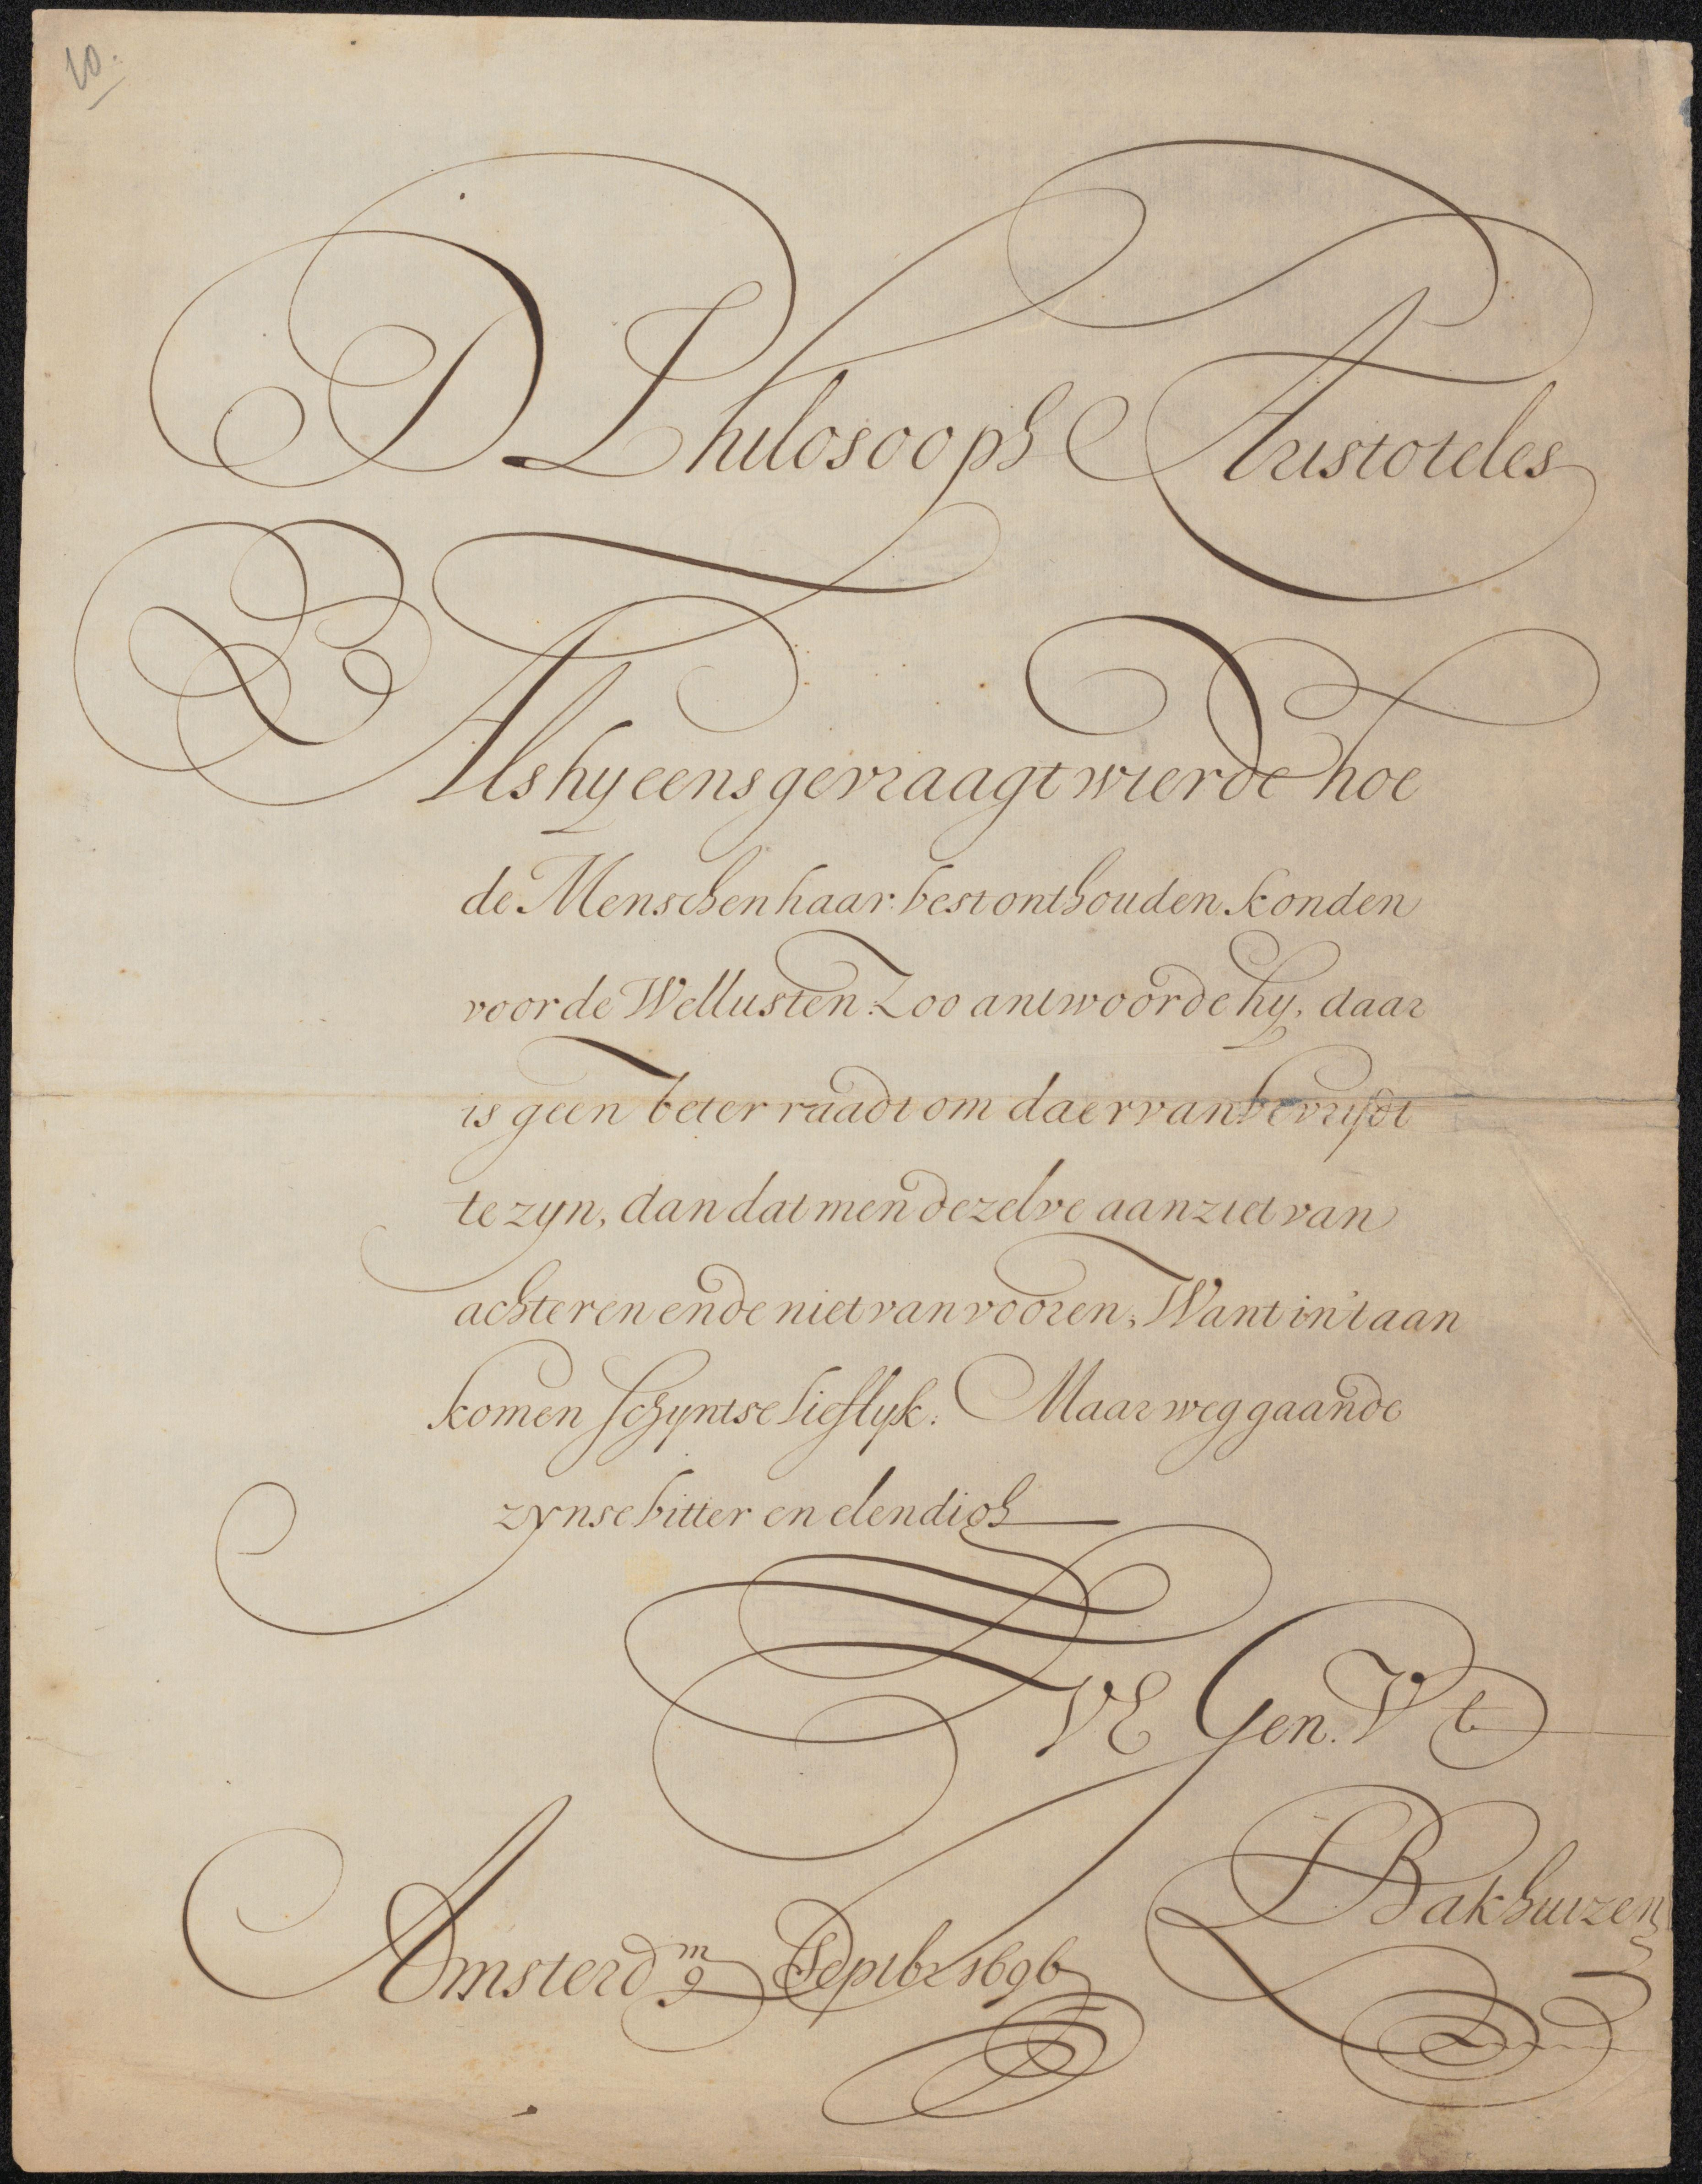 10.
D Philosooph Aristoteles
Als hy eens gevraagt wierde hoe
de Menschen haar best onthouden konden
voor de Wellusten. Zoo antwoorde hy, daar
is geen beter raadt om daer van bevrijdt
te zyn, dan dat men dezelve aanziet van
achteren ende niet van vooren, Want in't aan
komen schynt se lieflyk: Maar weg gaande
zyn se bitter en elendigh
VE Gen. Vt
LBakhuizen
Amsterdm 9 Septbr 1696